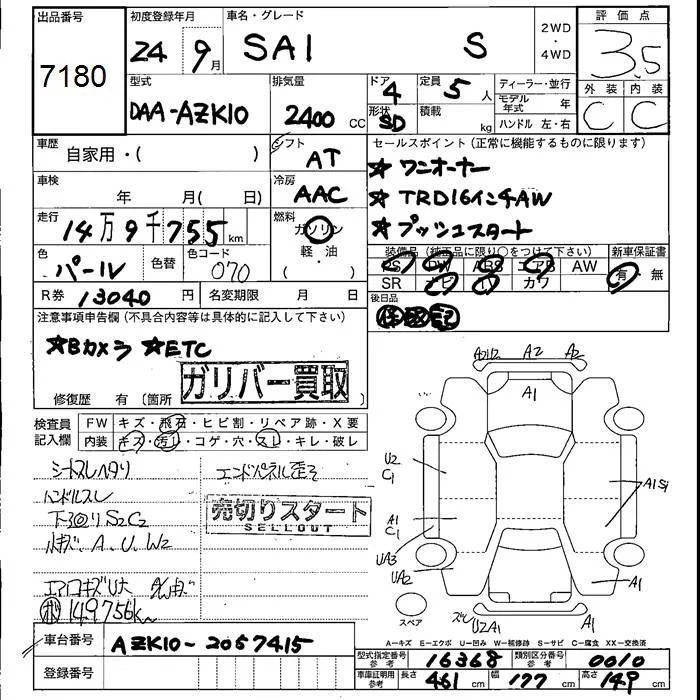 出品番号 初度登録年月 車名・グレード 2WD・4WD 評価点
7180 24 9月 SAI S 3.5
型式 排気量 ドア 4 定員 5人 ディーラー・並行 外装 内装
DAA-AZK10 2400 CC 形状 SD 積載 kg モデル年式 年 C C
ハンドル 左・右
車歴 自家用・( ) シフト AT セールスポイント(正常に機能するものに限ります)
車検 年 月( 日) 冷房 AAC ★ワンオーナー
★TRD16インチAW
走行 14万9千755km 燃料 ガソリン ★プッシュスタート
軽・油
( ・ )
色 パール 色替 色コード 070 装備品(純正品に限り○をつけて下さい) 新車保証書
PS PW ABS エアB AW 有・無
R券 13040円 名変期限 月 日 SR ナビ TV カワ
後日品
保 取 記
注意事項申告欄(不具合内容等は具体的に記入して下さい)
★Bカメラ ★ETC
修復歴 有〔箇所 ガリバー買取
検査員記入欄 FW キズ・飛石・ヒビ割・リペア跡・X要
内装 キズ・汚れ・コゲ・穴・スレ・キレ・破レ
シートスレヘタリ エンドパネル歪ミ
ハンドルスレ
下廻りS2C2 売切りスタート
SELLOUT
小キズ、A、U、W2
エアロキズU大
149756km
A2U2 A2 A2
A1
U2
C1
A1 S1
A1
C1
UA3
UA2
A1
スペア U2A1 A1
A-キズ E-エクボ U-凹み W-補修跡 S-サビ C-腐食 XX-交換済
車台番号 AZK10-2057415
登録番号
型式指定番号 参考 16368 類別区分番号 参考 0010
車庫証明用 参考 長さ 461 cm 幅 177 cm 高さ 149 cm